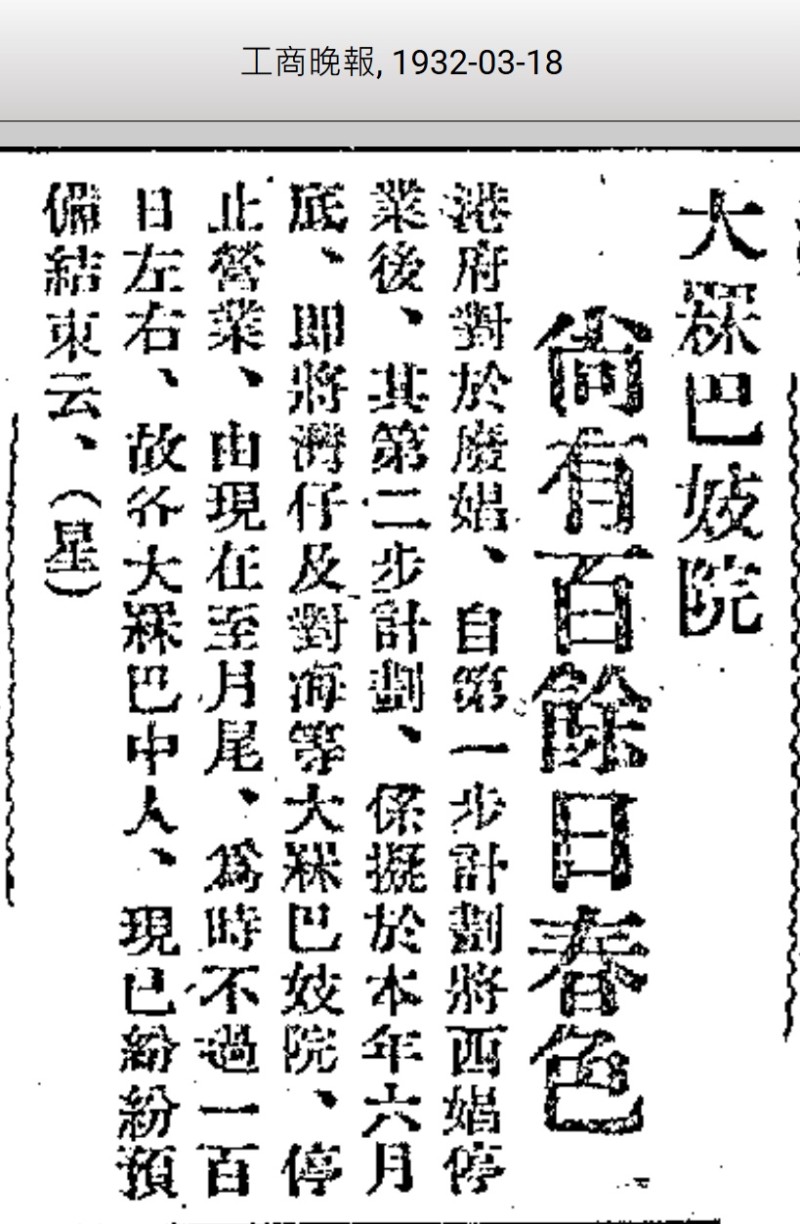 工商晚報, 1932-03-18
大冧巴妓院
尙有百餘日春色
港府對於廢娼、自第一步計劃將西娼停
業後、其第二步計劃、係擬於本年六月
底、即將灣仔及對海等大冧巴妓院、停
止營業、由現在至月尾、爲時不過一百
日左右、故各大冧巴中人、現已紛紛預
備結束云、（星）